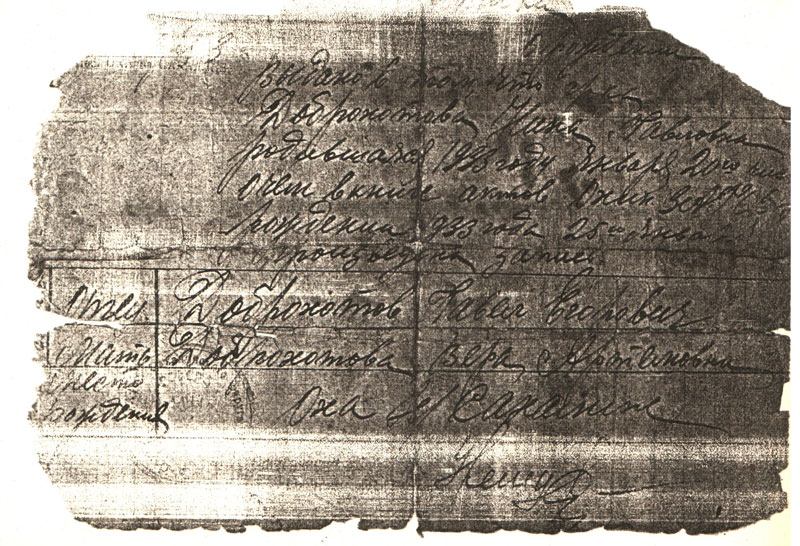 о рождении
Выдано в том что гр-ка
Доброхотова Нина Павловна
родившаяся 1933 года января 20го
о чем в книге актов
рождении 933 года 25го янва
произведена запись
Отец Доброхотов Павел Егорович
Мать Доброхотова Вера Артамовна
место
рождения Оха Сахалин